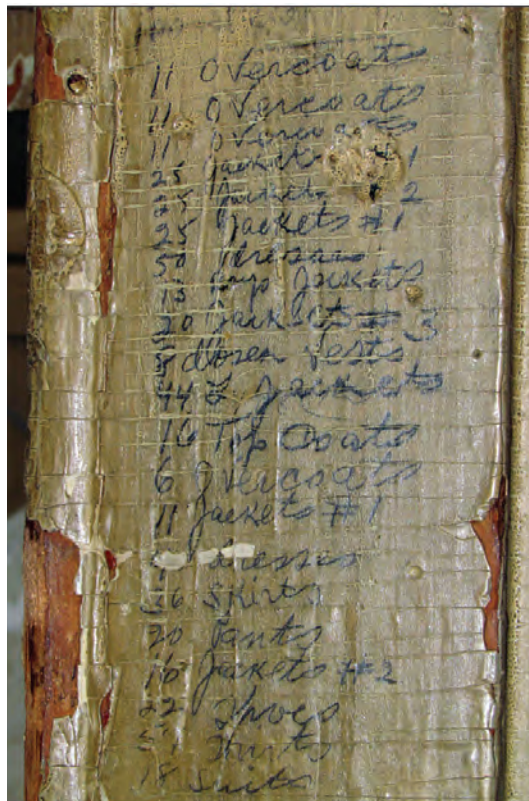 11 Overcoats
11 Overcoats
11 Overcoats
25 Jackets 1
25 Jackets 2
25 Jackets #1
50 dresses
Jackets
20 Jackets # 3
dozen Vests
44 Jackets
16 Top Coats
6 Overcoats
11 Jackets #1
dresses
Skirts
20 Pants
16 Jackets #2
22 Shoes
Shirts
18 Suits